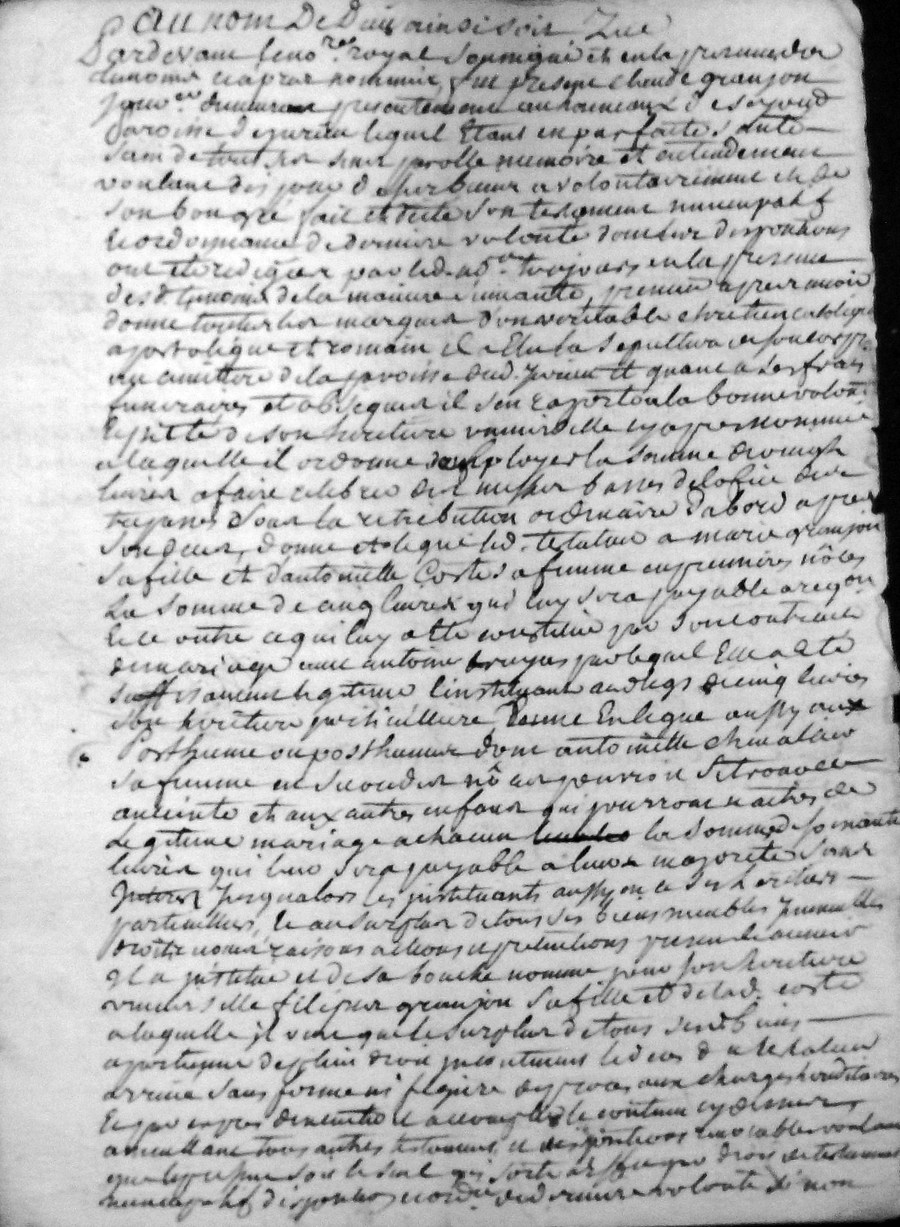 au nom De Dieu ainsi soit
Pardevant le no.re royal soussigné et en la presence des
temoins cy apres nommés, fut present claude granjon
demeurant presentement au hameaux
paroisse lequel Etant en parfaite santé
sain de tout ses sens parolle memoire et entendement
voulant disposer a volontairement et de
son bon gré fait et dicté son testament nuncupatif
et ordonnance de derniere volonté dont les dispositions
ont ete redigées par led. no.re toujours en la presence
desd. temoins de la maniere suivante, premier apres avoir
donné toutes les marques d'un veritable chretien catolique
apostolique et romain il a Elu la sepulture de son corps
au cimittere de la paroisse dud. et quant a ses frais
funeraires et obseques il s'en raporte a la bonne volonté
et pitté de son heritiere universelle cy apres nommée
a laquelle il ordonne d'employer la somme de
livres a faire celebrer des messes basses de l'ofice des
trepassés sous la retribution ordinaire d'abord apres
son deces, donne et legue led. testateur a marie granjon
sa fille et d'antoinette Coste sa femme en premieres nôces
La somme de cinq livres qui luy sera payable
et ce outre ce qui luy a ete constitué par son contract
de mariage avec antoine par lequel Elle a ete
suffisament legitimée l'instituant aud. legs de cinq livres
son heritiere particulliere, Donne En legue aussy aux
Posthume ou posthumes dont antoinette
sa femme en secondes nôces pourroit se trouver
enceinte et aux autres enfans qui pourront naitre de
Legitime mariage a chacun la somme de soixante
livres qui leur sera payable a leur majorité sans
Interet jusqu'alors les instituants aussy en ce ses heritiers
particulliers, et au surplus de tous ses biens meubles Immeubles
droits noms raisons actions et pretentions presents et avenir
Il a institué et de sa bouche nommé pour son heritiere
universelle granjon sa fille et de lad. coste
a laquelle il veut que le surplus de tous sesd. biens
apartienne de plein droit incontinent le deces d. testateur
arrivé sans forme ni figure de proces aux charges hereditaires
Et par expres d'executer et accomplir le contenu cy dessus
annullant tous autres testaments et dispositions revocables voulant
que le present soit le seul qui sorte a Effet par droit de testament
nuncupatif disposition et ord.ce de derniere volonté si non